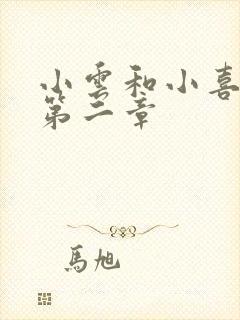 小雲和小喜
第二章
馬旭